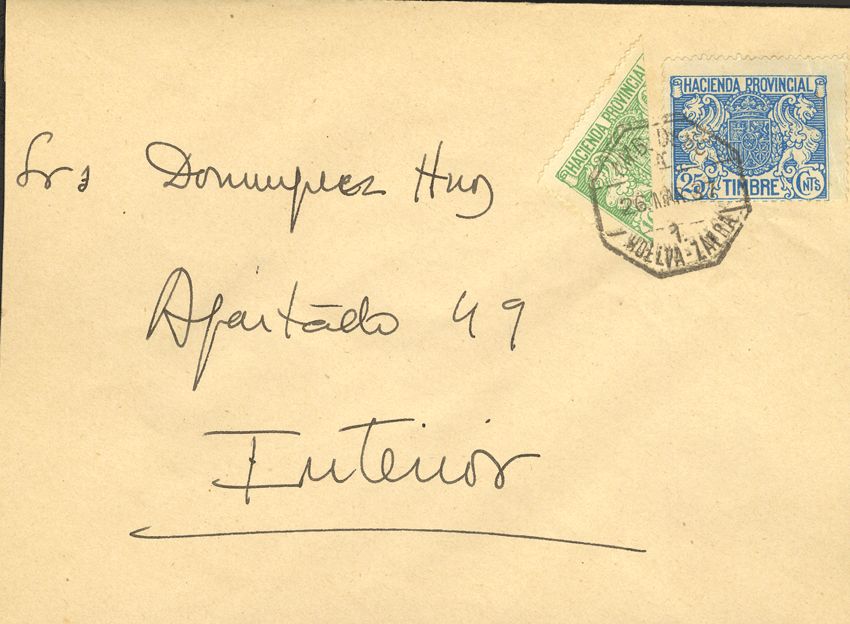 HACIENDA PROVINCIAL
HACIENDA PROVINCIAL
25 TIMBRE CNTS
HUELVA-ZAFRA
Srs Dominguez Hnos
Apartado 49
Interior